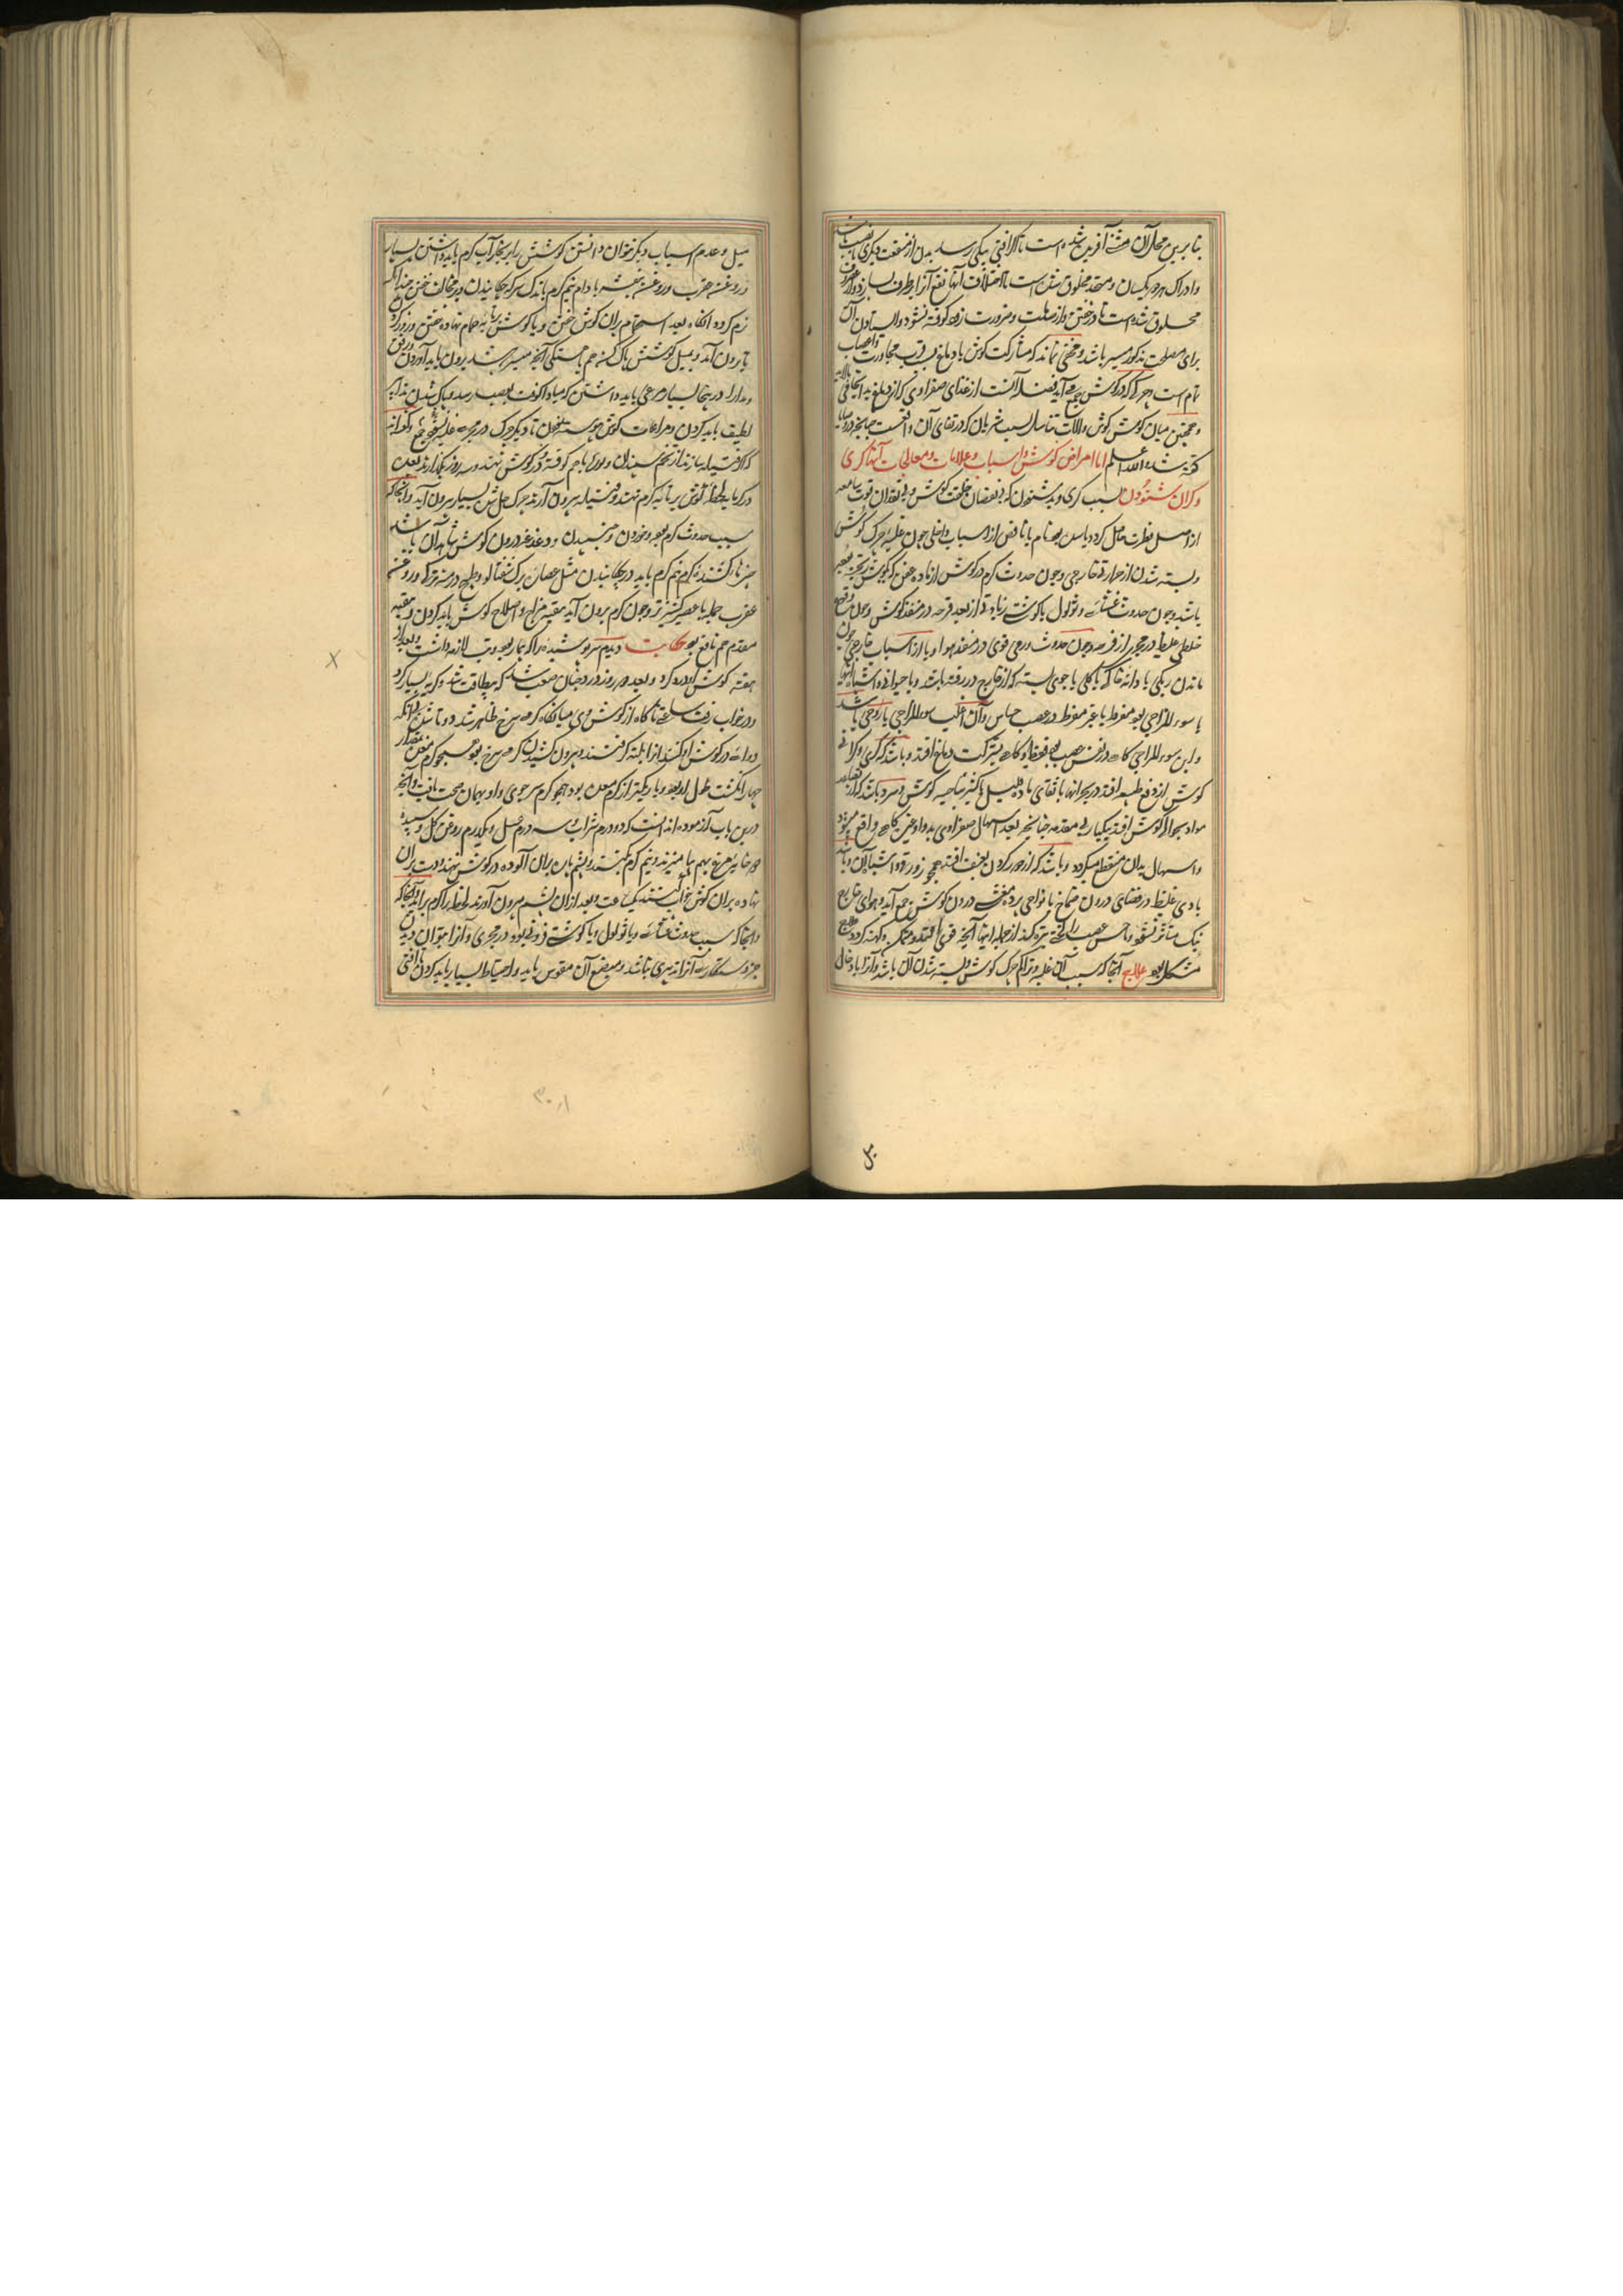 بنا برین محل آن هشته آفریده شده است تا اگر آفتی بیکی رسد بدل از منفعت دیگری
و ادراک هر دو یکسان و متحد مخلوق شده است تا اختلاف آنها نفع آنرا برطرف نسازد
مخلوق شده است تا در خفتن و از صلبت و ضرورت زود کوفته نشود و ایستادن آن
برای مصلحت مذکور میسر باشد و مخفی نماند که مشارکت کوش با دماغ بسبب قرب مجاورت
تمام است هر چرک که در کوش جمع می آید فضله آنست از غذای صفراوی که از دماغ به آنجا
و همچنین میان کوش و آلات تناسل بسبب شریان که در قفای آن واقعست چنانچه در
کفته شد والله اعلم اما امراض کوش و اسباب و علامات و معالجات آنها کری
و کران شنودن سبب کری و بد شنودن که نقصان خلقت کوش و یا فقدان قوت سامعه
از اصل فطرت حاصل کردد یا سن بود تام یا ناقص از اسباب داخلی چون غلبه چرک کوش
و بسته شدن از حرارت خارجی و چون حدوث کرم در کوش از ماده عفن که بکوش
باشد و چون حدوث غشائی و ثولول یا کوشت زیادتی از بعد قرحه در منفذ کوش و چون
خلطی غلیظ در مجری از قرحه و چون حدوث ورمی قوی در منفذ هوا و یا از اسباب خارجی
ماندن ریکی یا دانه خاکی یا کلی یا چوبی بسته که از خارج در رفته باشد و یا حیوانی و اشباه آنها
یا سوء المزاجی بود مفرط یا غیر مفرط در عصب حساس و آن اغلب سوء المزاجی بارد
و این سوء المزاجی کاه در نفس عصب بود فقط و کاه بشرکت دماغ افتد و باشد که کری و کرانی
کوش از دفع طبیعه افتد در بحرانها با بقای ماده قلیل یا کثیر بناحیه کوش و سرد باشد که از
مواد بحرانی کوش افتد بیکبار بی مقدمه چنانچه بعد اسهال صفراوی بد و ادعیه کاه واقع
و اسهال بدان منقطع میکردد و باشد که از خوردن بعنف افتد همچو
بادی غلیظ در فضای درون صماخ یا نواحی پرده مغشی درون کوش جمع آید و هوای خارج
نیک متأثر نشود و حس عصب را نکیته تیره کند از جمله اینها آنچه قوی افتد و متمکن و کهنه کردد
مشکل بود علاج آنجا که سبب آن غلبه و تراکم چرک کوش و بسته شدن آن باشد و آنرا
میل
میل و عدم اسباب دیکر توان دانستن کوشش را بر بخار آب کرم باید داشتن بسیار
و روغن عقرب و روغن بنفشه بادام نیم کرم با اندک سرکه چکانیدن و بر مخالف خفتن چندانکه
نرم کردد انکاه بعد استحمام بران کوش خفتن و یا کوشش بر تابه حمام نهاده خفتن
تا برون آمد و بمیل کوشش پاک کنه هم بآهستکی آنچه میسر باشد برون باید آوردن و رفق
و مدارا در اینجا بسیار مرعی باید داشتن که مبادا کوفت بعصب رسد و پاک شدن
لطیف باید کردن و مراعات کوش پیوسته نمودن تا دیکر چرک در مجری غلبه نشود
که فتیله سازند از تخم سپندان و بوره باهم کوفته و در کوش نهند و سه روز بکذارند بعد
در کرمابه لحظه کوش بر تابه کرم نهند و فتیله برون آرند چرک حل شده بسیار برون آید و آنجا که
سبب حدوث کرم بود و خوردن و جنبیدن و دغدغه درون کوش شاهد آن باشد
چیزهای کشنده کرم نیم کرم باید در چکانیدن مثل عصاره برک شفتالو و طبیخ درمنه ترکی و روغن
عقرب جمله با عصیر کشنیز تر و چون کرم برون آید تنقیه مزاج و اصلاح کوش باید کردن و تنقیه
مقدم هم نافع بود حکایت دیدم سرپوشیده را که بیمار بود و تب لازمه داشت و بعد از
هفته کوش او درد کرد و بعد دو روز درد چنان صعب شد که بیطاقت شد و کریه بسیار کرد
و در خواب رفت ساعتی ناکاه از کوش وی میانکاه کرمی سرخ ظاهر شد
دوائی در کوش او کنند از ابله کرفتند و برون کشیدند کرمی سرخ بود همچو کرم معده
چهار انکشت طول او بود و باریکتر از کرم معده بود همچو کرم سرجوی و او بهمان صحت یافت و آنچه
درین باب آزموده اند آنست که دو درم شراب و سه درم عسل و یکدرم روغن کل و سپیده
دو خایه مرغ بهم بیامیزند و نیم کرم کنند و پشم پاره بدان آلوده در کوش نهند و دست بران
نهاده بران کوش خواب کنند یکساعت و بعد از آن پشم برون آورند بلحظه کرم برآید
و آنجا که سبب حدوث غشائی و یا ثولول و یا کوشت فزونی بود در مجری و آنرا بتوان دیدن
جز دستکاری آنرا تدبیری نباشد و مبضع آن مقوس باید و احتیاط بسیار باید کردن تا آفتی